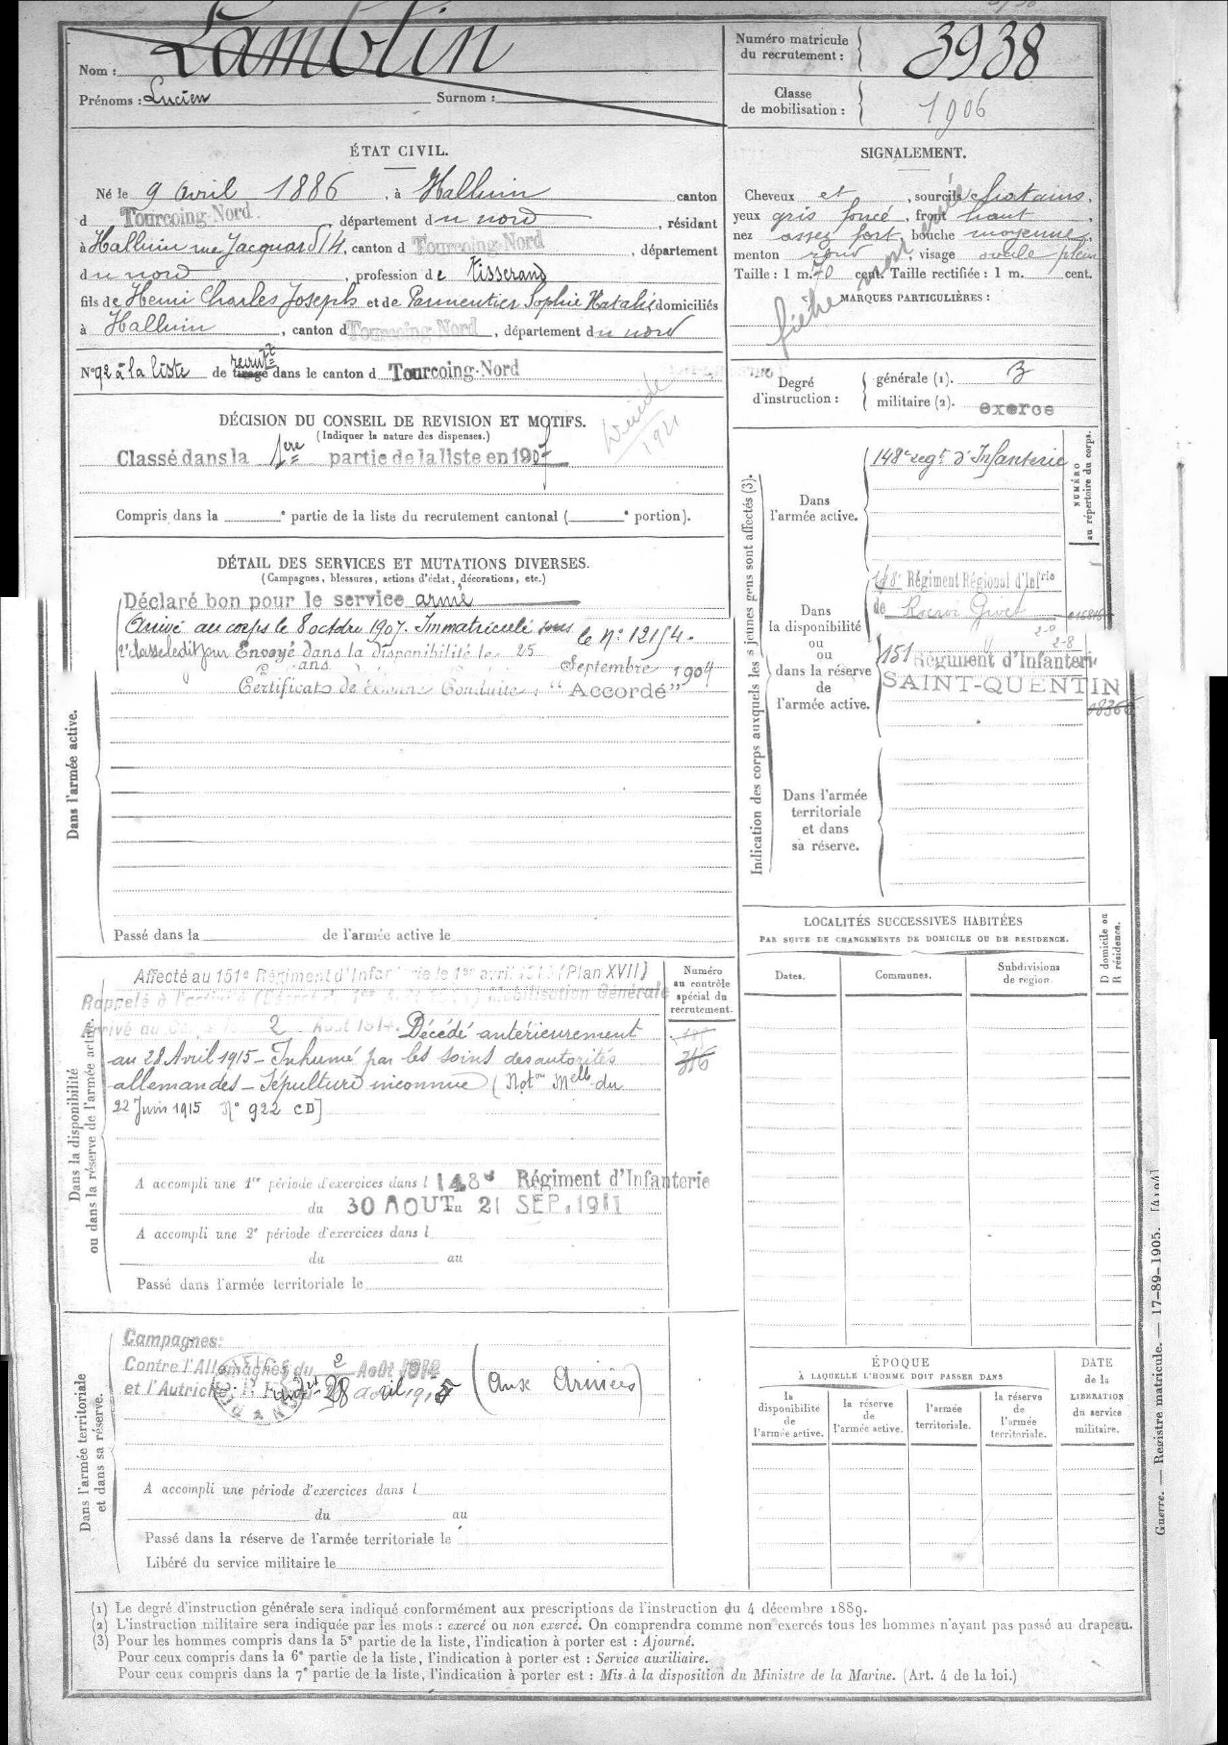 Nom : Lamblin
Prénoms : Lucien Surnom :
Numéro matricule du recrutement : 3938
Classe de mobilisation : 1906
ÉTAT CIVIL.
Né le 9 avril 1886, à Halluin canton
d Tourcoing-Nord, département du nord, résidant
à Halluin rue Jacquard 14, canton d Tourcoing-Nord, département
du nord, profession de tisserand
fils de Henri Charles Joseph et de Parmentier Sophie Natalie domiciliés
à Halluin, canton d Tourcoing-Nord, département du nord
N° 92 à la liste de recrutt tirage dans le canton d Tourcoing-Nord
SIGNALEMENT.
Cheveux et, sourcils chatains,
yeux gris foncé, front haut,
nez assez fort, bouche moyenne,
menton rond, visage ovale plein
Taille : 1 m. 70 cent. Taille rectifiée : 1 m. cent.
MARQUES PARTICULIÈRES :
Degré d'instruction :
générale (1). 3
militaire (2). exerce
DÉCISION DU CONSEIL DE REVISION ET MOTIFS.
(Indiquer la nature des dispenses.)
Classé dans la 1ère partie de la liste en 1907
1921
Compris dans la e partie de la liste du recrutement cantonal ( e portion).
DÉTAIL DES SERVICES ET MUTATIONS DIVERSES.
(Campagnes, blessures, actions d'éclat, décorations, etc.)
Dans l'armée active.
Déclaré bon pour le service armé
Arrivé au corps le 8 octobre 1907. Immatriculé sous le N° 12154.
2e classe ledit jour Envoyé dans la disponibilité le 25
Septembre 1909
Certificat de Bonne Conduite : "Accordé"
Passé dans la de l'armée active le
Indication des corps auxquels les jeunes gens sont affectés (3).
NUMÉRO au répertoire du corps.
Dans l'armée active.
148e regt d'Infanterie
Dans la disponibilité ou ou dans la réserve de l'armée active.
148e Régiment Régional d'Infrie
de Rocroi Givet
151 Régiment d'Infanterie
SAINT-QUENTIN
Dans l'armée territoriale et dans sa réserve.
Dans la disponibilité ou dans la réserve de l'armée active.
Affecté au 151e Régiment d'Infanterie le 1er avril 1913 (Plan XVII)
Rappelé à l'activité (Décret du 1er Août 1914) Mobilisation Générale
Arrivé au Corps le 2 Août 1914. Décédé antérieurement
au 28 Avril 1915 - Inhumé par les soins des autorités
allemandes - Sépulture inconnue (Noton Melle du
22 Juin 1915 N° 922 CD)
Numéro au contrôle spécial du recrutement.
316
A accompli une 1re période d'exercices dans l 148e Régiment d'Infanterie
du 30 AOUT au 21 SEP. 1911
A accompli une 2e période d'exercices dans l
du au
Passé dans l'armée territoriale le
LOCALITÉS SUCCESSIVES HABITÉES
PAR SUITE DE CHANGEMENTS DE DOMICILE OU DE RESIDENCE.
Dates. Communes. Subdivisions de région. D domicile ou R résidence.
Dans l'armée territoriale et dans sa réserve.
Campagnes:
Contre l'Allemagne du 2 Août 1914
et l'Autriche 28 avril 1915 (aux Armées)
A accompli une période d'exercices dans l
du au
Passé dans la réserve de l'armée territoriale le
Libéré du service militaire le
ÉPOQUE
À LAQUELLE L'HOMME DOIT PASSER DANS
la disponibilité de l'armée active.
la réserve de l'armée active.
l'armée territoriale.
la réserve de l'armée territoriale.
DATE de la LIBÉRATION du service militaire.
(1) Le degré d'instruction générale sera indiqué conformément aux prescriptions de l'instruction du 4 décembre 1889.
(2) L'instruction militaire sera indiquée par les mots : exercé ou non exercé. On comprendra comme non exercés tous les hommes n'ayant pas passé au drapeau.
(3) Pour les hommes compris dans la 5e partie de la liste, l'indication à porter est : Ajourné.
Pour ceux compris dans la 6e partie de la liste, l'indication à porter est : Service auxiliaire.
Pour ceux compris dans la 7e partie de la liste, l'indication à porter est : Mis à la disposition du Ministre de la Marine. (Art. 4 de la loi.)
Guerre. — Registre matricule. — 17-89-1905. [4194]